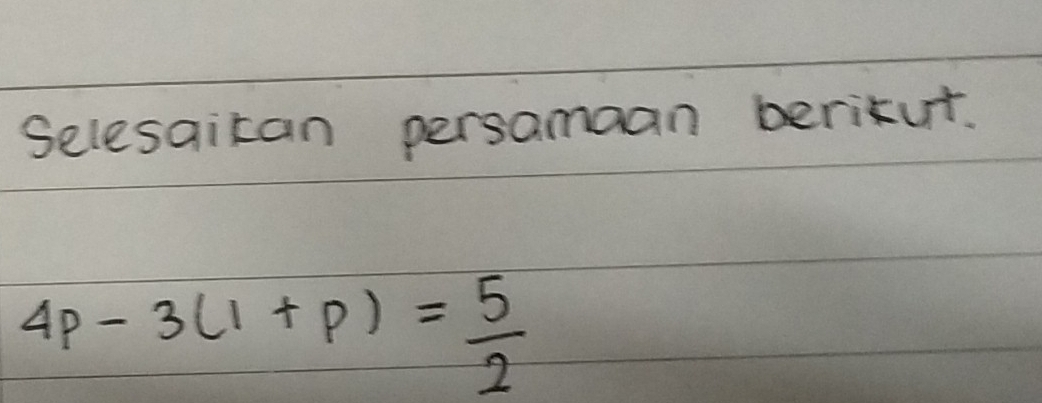 Selesaikan persamaan berikut.
4p - 3(1 + p) = 5/2